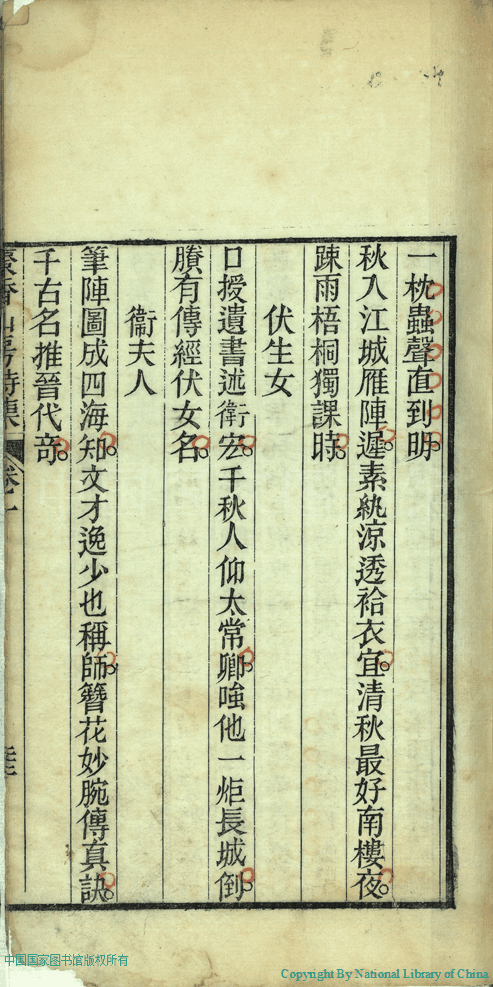 一枕蟲聲直到明
秋入江城雁陣遲素紈涼透袷衣宜清秋最好南樓夜
踈雨梧桐獨課時
伏生女
口授遺書述衛宏千秋人仰太常卿嗤他一炬長城倒
賸有傳經伏女名
衞夫人
筆陣圖成四海知文才逸少也稱師簪花妙腕傳真訣
千古名推晉代奇
山房詩集 卷一
中国国家图书馆版权所有
Copyright By National Library of China